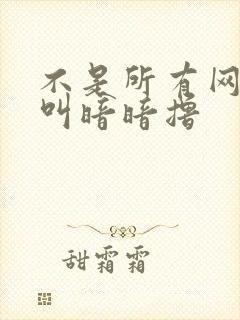 不是所有网
叫暗暗撸
甜霜霜